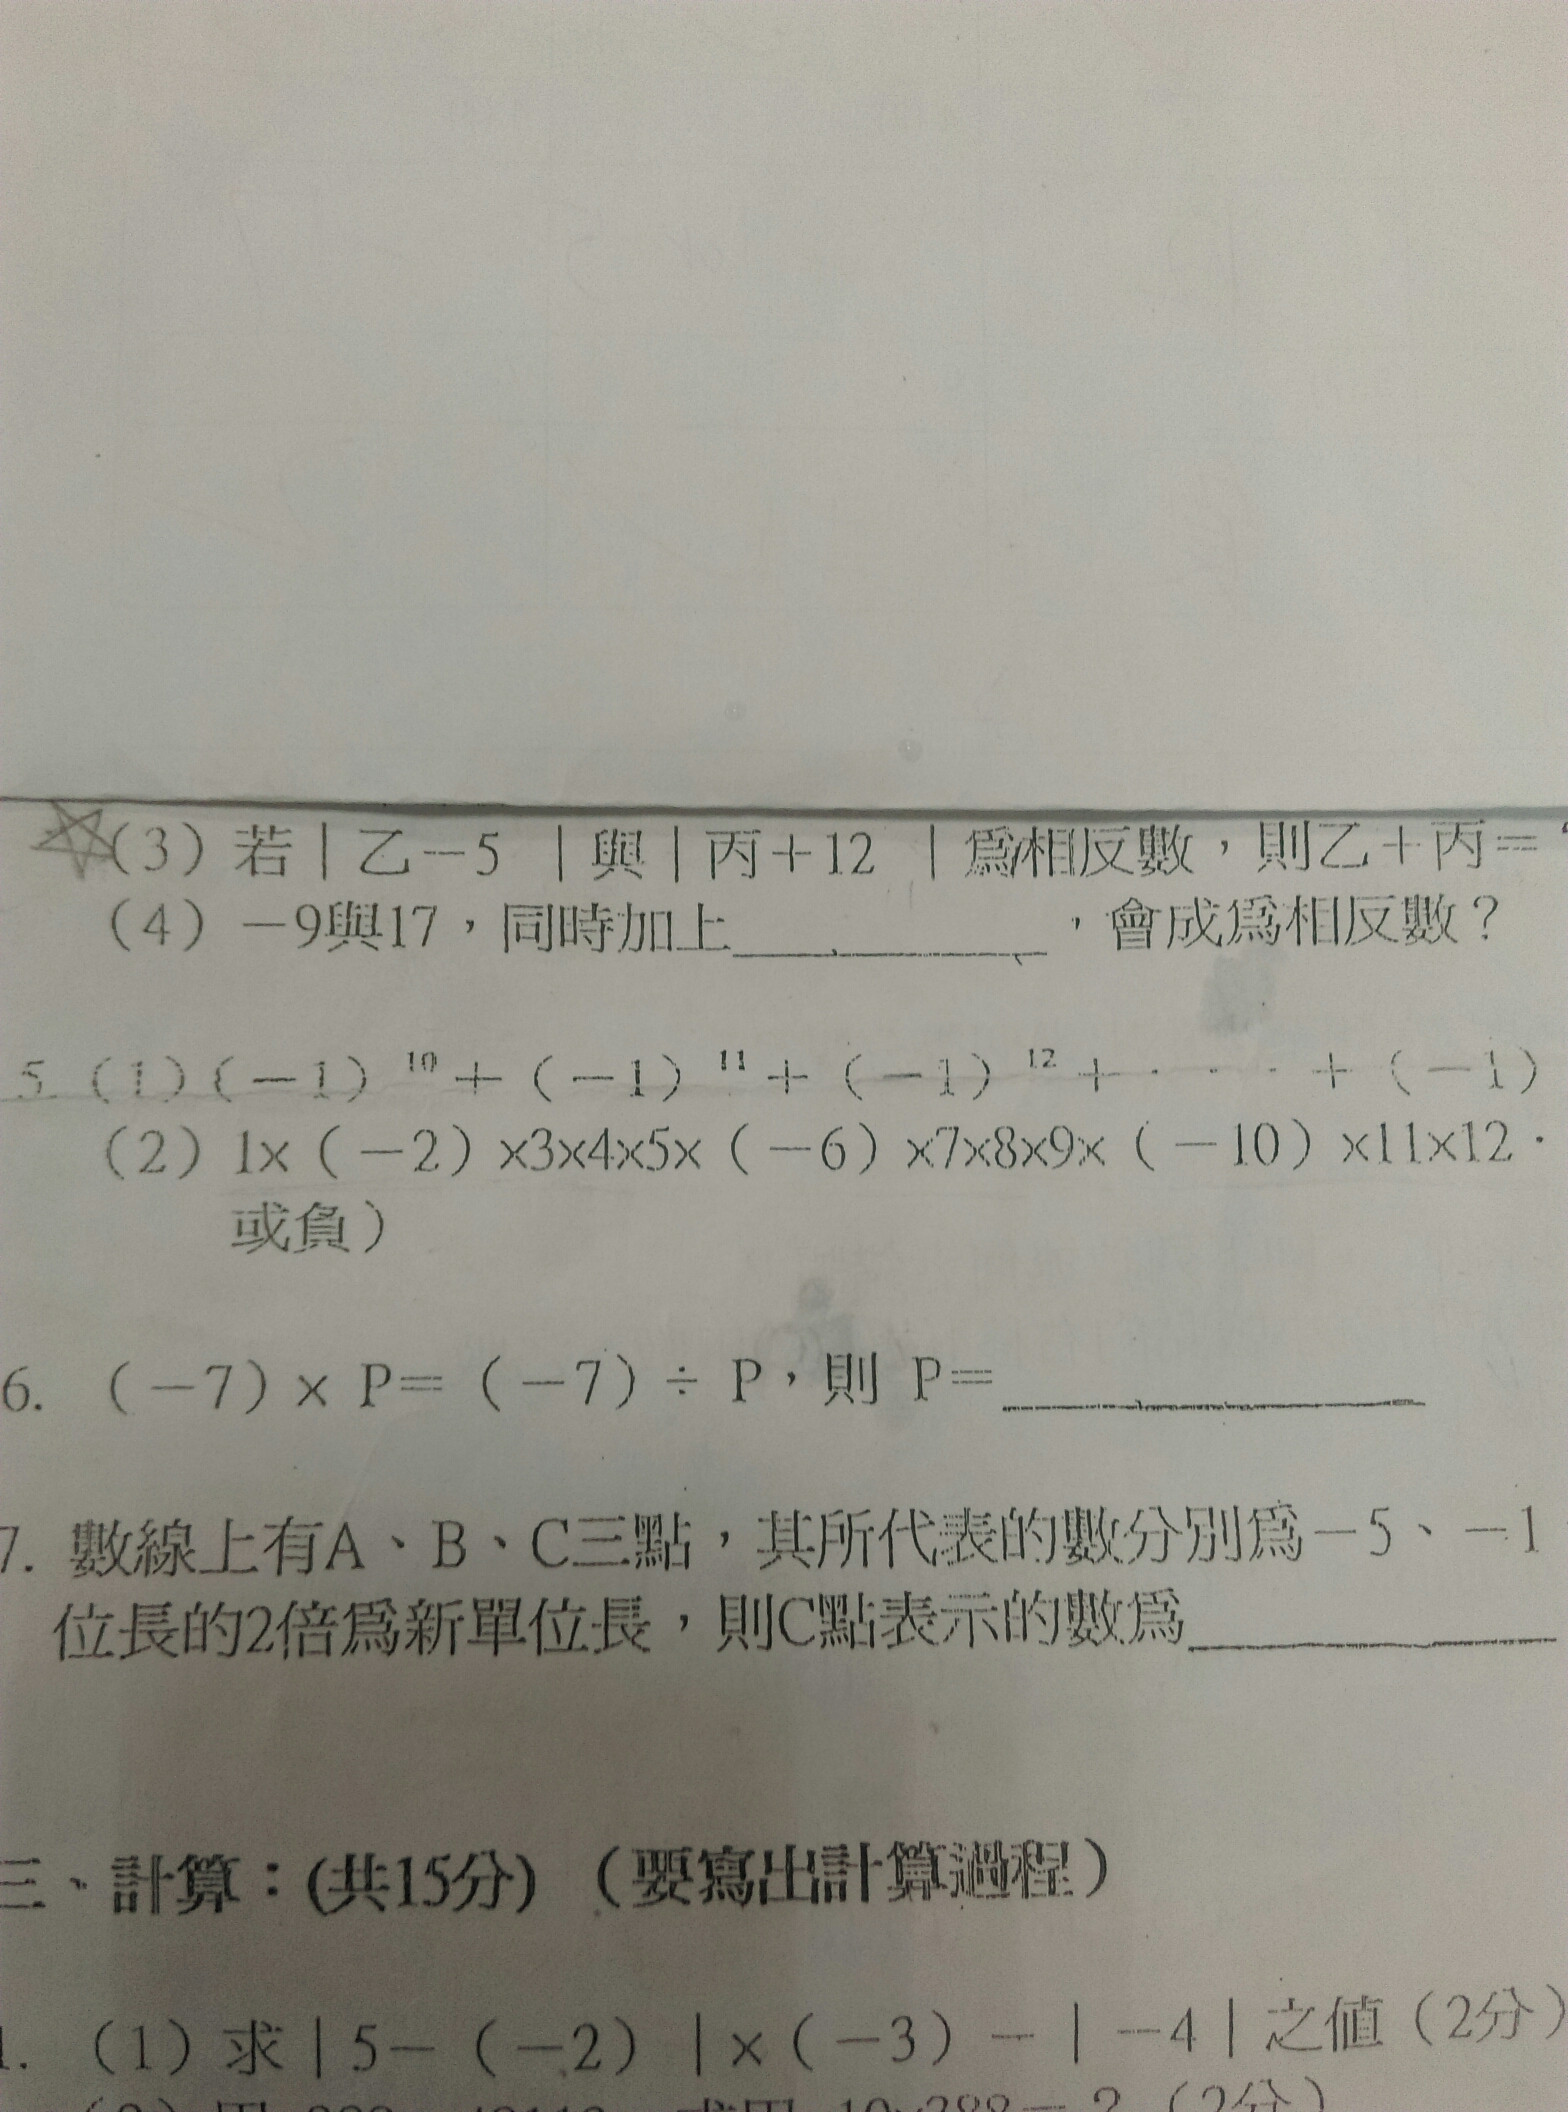 (3)若|乙－5 |與|丙＋12 |為相反數，則乙＋丙＝
(4)－9與17，同時加上＿＿＿＿＿＿，會成為相反數？
5.(1)(－1)¹⁰＋(－1)¹¹＋(－1)¹²＋‧‧‧‧＋(－1)
(2)1×(－2)×3×4×5×(－6)×7×8×9×(－10)×11×12‧
或負)
6. (－7)× P＝(－7)÷ P，則 P＝＿＿＿＿＿＿
7. 數線上有A、B、C三點，其所代表的數分別為－5、－1
位長的2倍為新單位長，則C點表示的數為＿＿＿＿＿＿
三、計算：(共15分) (要寫出計算過程)
1. (1)求|5－(－2) |×(－3)－|－4|之值(2分)